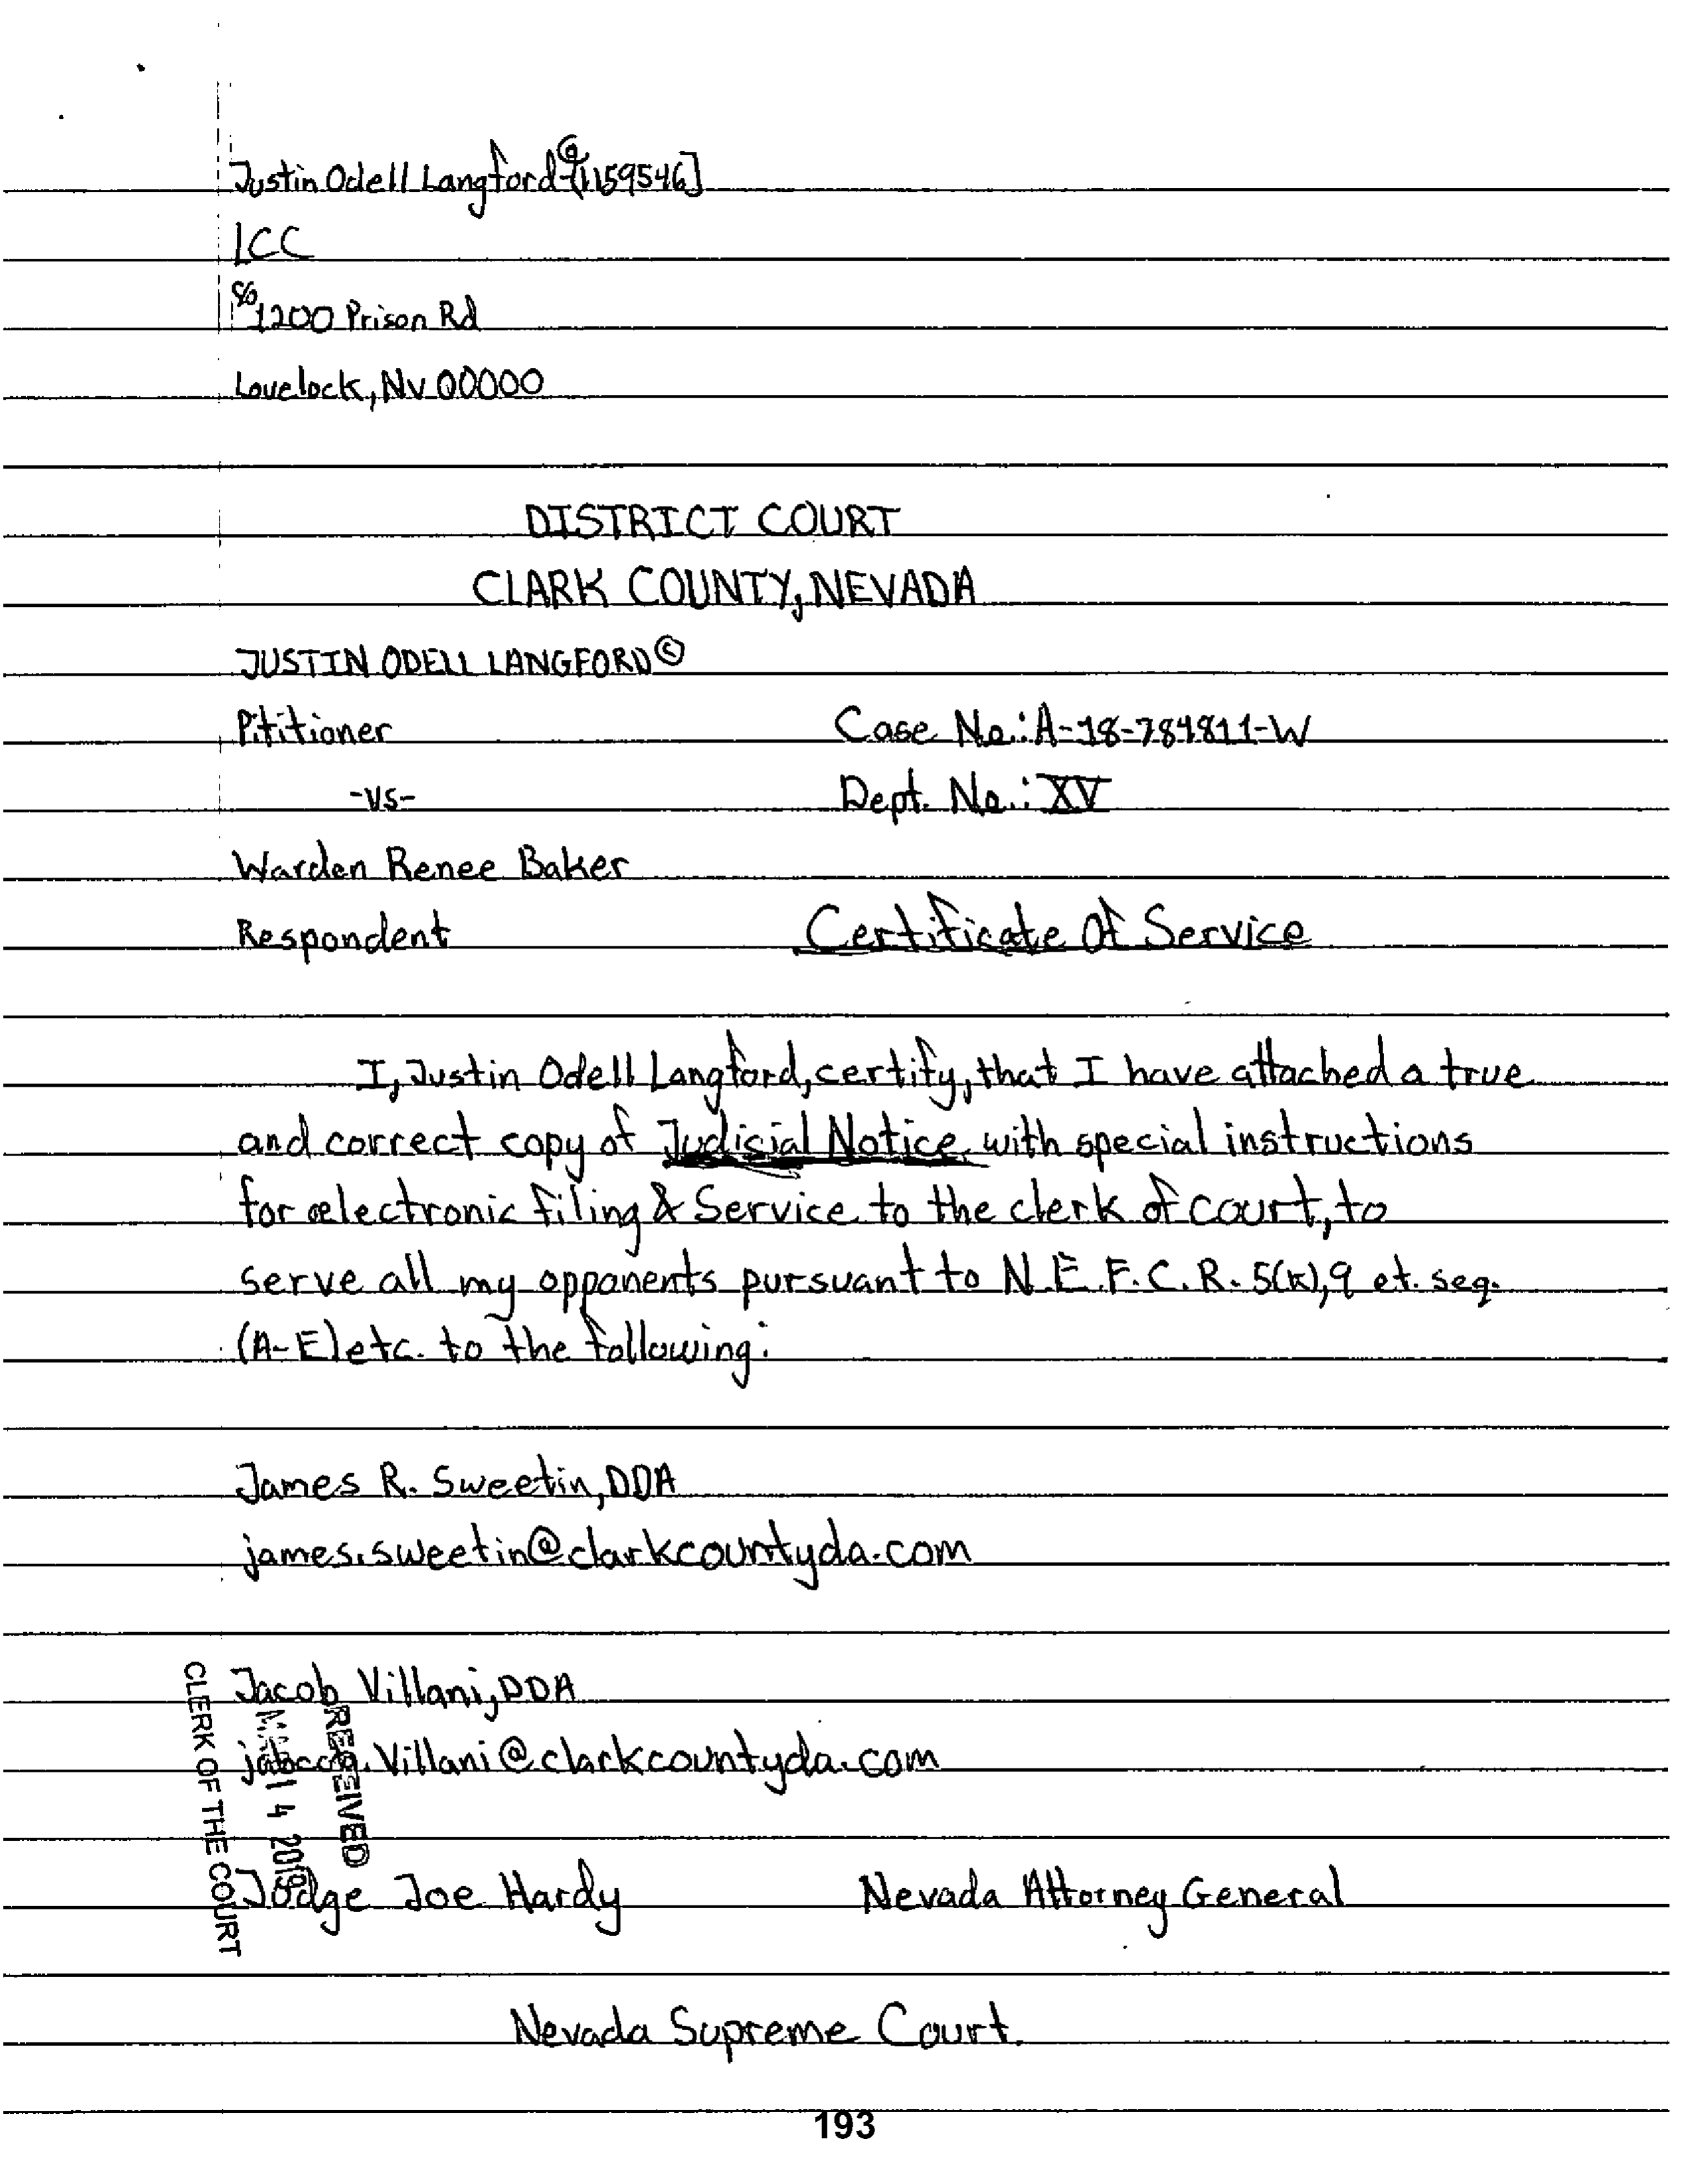 Justin Odell Langford © [1159546]
LCC
℅ 1200 Prison Rd
Lovelock, NV 00000
DISTRICT COURT
CLARK COUNTY, NEVADA
JUSTIN ODELL LANGFORD ©
Pititioner Case No.: A-18-784811-W
-VS- Dept. No.: XV
Warden Renee Baker
Respondent Certificate Of Service
I, Justin Odell Langford, certify, that I have attached a true
and correct copy of Judisial Notice with special instructions
for electronic filing & Service to the clerk of court, to
serve all my opponents pursuant to N.E.F.C.R. 5(k), 9 et. seq.
(A-E) etc. to the following:
James R. Sweetin, DDA
james.sweetin@clarkcountyda.com
Jacob Villani, DDA
Villani@clarkcountyda.com
Judge Joe Hardy Nevada Attorney General
Nevada Supreme Court.
RECEIVED
14 2019
CLERK OF THE COURT
193